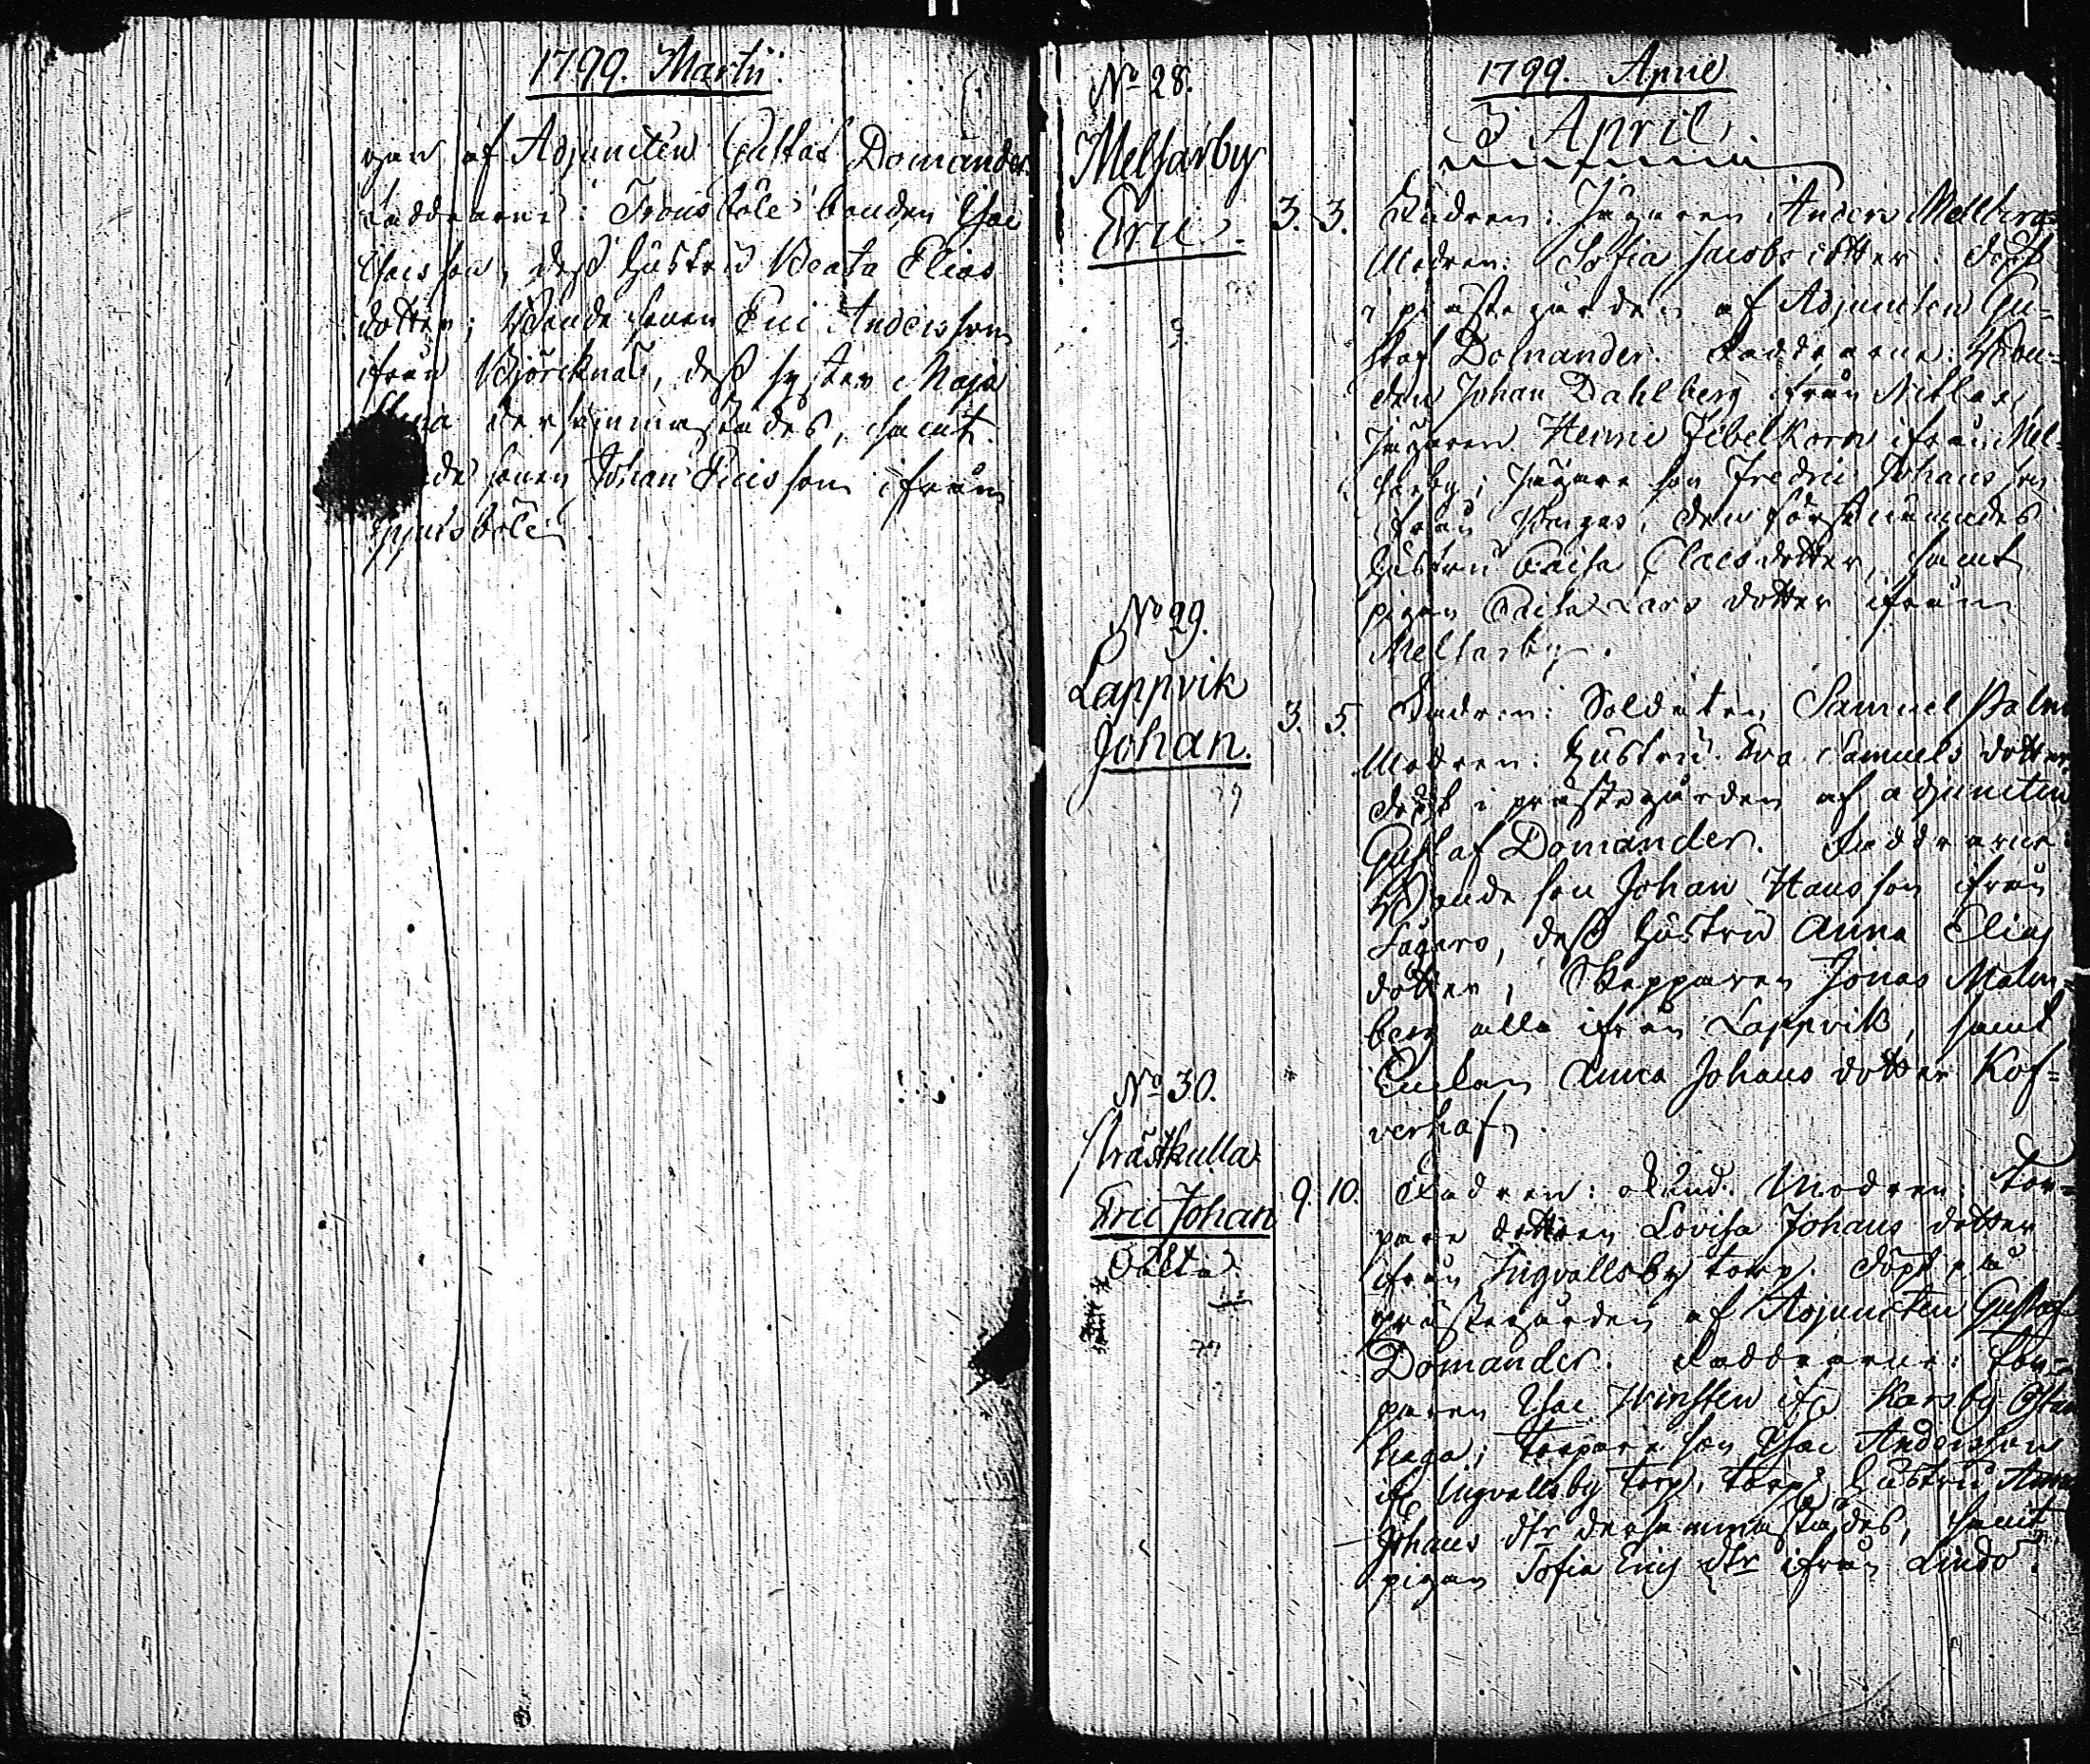 1799. Martii.
af Adjuncten Gustaf Domander.
Faddrarne: Tronsböle bonden Isac
Isacsson, dess hustru Beata Elias
dotter; Bonde sonen Eric Andersson
ifrån Björcknäs, dess syster Maja
dersammastädes, samt
sonen Johan Ericsson ifrån
No 28.
Melsarby
Eric.
1799. April
April.
3. 3. Fadren: Jägaren Anders Mellberg
Modren: Sofia Jacobs dotter: döpt
i prästegården af Adjuncten Gu=
staf Domander. Faddrarne: Bon=
den Johan Dahlberg ifrån
Jägaren Henric Jebelkorn ifrån Mel=
sarby; Jägare son Fredric Johansson
ifrån den förstnämndes
hustru Caisa Claesdotter, samt
pigan Caisa Lars dotter ifrån
Melsarby.
No 29.
Lappvik
Johan.
3. 5. Fadren: Soldaten Samuel Palm
Modren: Hustru Eva Samuels dotter,
döpt i prästegården af adjuncten
Gustaf Domander. Faddrarne
Bonde son Johan Hansson ifrån
dess hustru Anna Elias
dotter; Skepparen Jonas Malm=
berg alla ifrån Lappvik, samt
Enckan Anna Johans dotter Kof=
verhaf.
No 30.
Präskulla
Eric Johan
Oäkta.
9. 10. Fadren: okänd. Modren: Tor=
pare dottren Lovisa Johans dotter
ifrån Ingvallsby torp. döpt på
prästegården af Adjuncten Gustaf
Domander. Faddrarne: Tor=
paren Isac Winsten ifr. Karsby Östan
haga; Torpare son Isac Andersson
ifr. Ingvallsby torp, torp. hustru Anna
Johans dtr dersammastädes, samt
pigan Sofia Erics dtr ifrån Lindö.